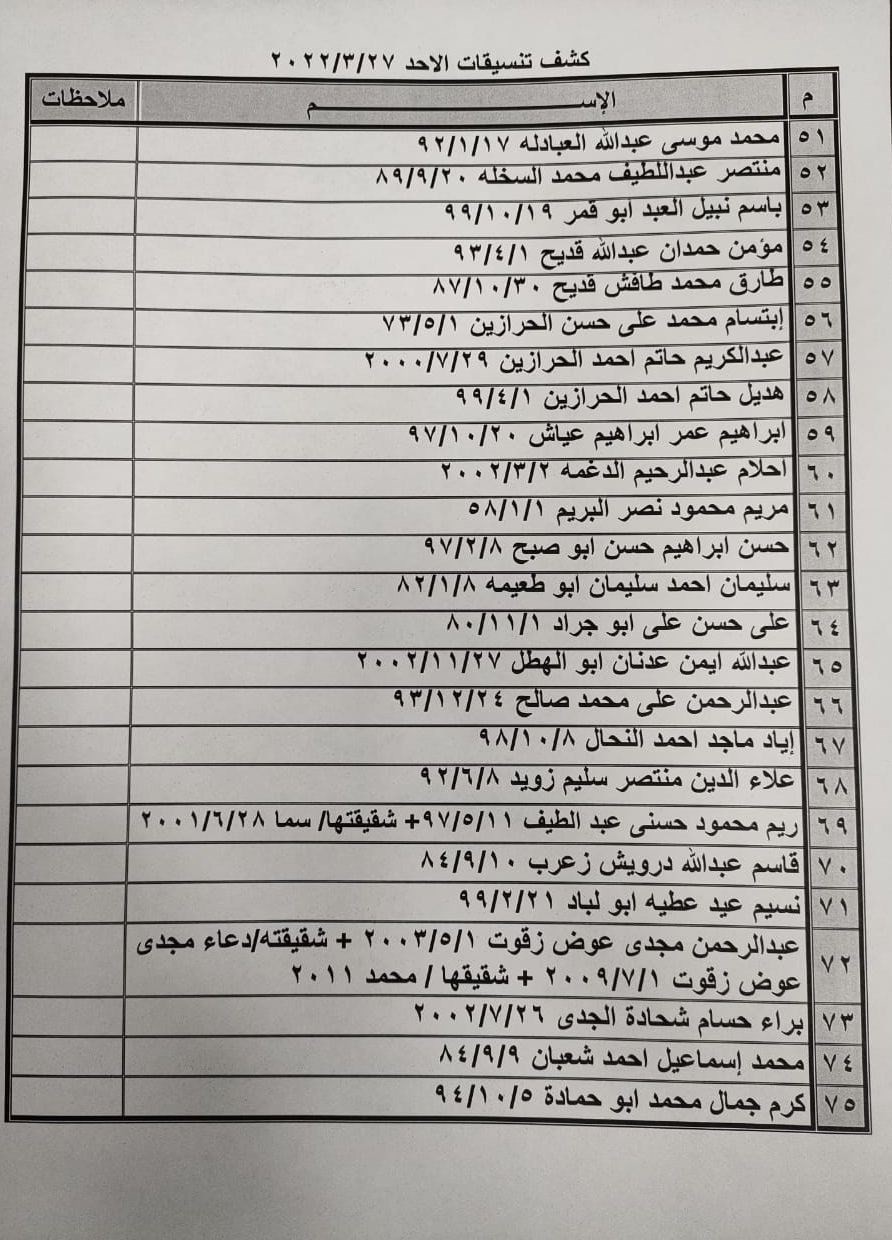 كشف تنسيقات الاحد ٢٠٢٢/٣/٢٧
م الإســـــــم ملاحظات
٥١ محمد موسى عبدالله العبادله ٩٢/١/١٧
٥٢ منتصر عبداللطيف محمد السخله ٨٩/٩/٢٠
٥٣ باسم نبيل العبد ابو قمر ٩٩/١٠/١٩
٥٤ مؤمن حمدان عبدالله قديح ٩٣/٤/١
٥٥ طارق محمد طافش قديح ٨٧/١٠/٣٠
٥٦ إبتسام محمد على حسن الحرازين ٧٣/٥/١
٥٧ عبدالكريم حاتم احمد الحرازين ٢٠٠٠/٧/٢٩
٥٨ هديل حاتم احمد الحرازين ٩٩/٤/١
٥٩ ابراهيم عمر ابراهيم عياش ٩٧/١٠/٢٠
٦٠ احلام عبدالرحيم الدغمه ٢٠٠٢/٣/٢
٦١ مريم محمود نصر البريم ٥٨/١/١
٦٢ حسن ابراهيم حسن ابو صبح ٩٧/٢/٨
٦٣ سليمان احمد سليمان ابو طعيمه ٨٢/١/٨
٦٤ على حسن على ابو جراد ٨٠/١١/١
٦٥ عبدالله ايمن عدنان ابو الهطل ٢٠٠٢/١١/٢٧
٦٦ عبدالرحمن على محمد صالح ٩٣/١٢/٢٤
٦٧ إياد ماجد احمد النحال ٩٨/١٠/٨
٦٨ علاء الدين منتصر سليم زويد ٩٢/٦/٨
٦٩ ريم محمود حسنى عبد الطيف ٩٧/٥/١١+ شقيقتها/ سما ٢٠٠١/٦/٢٨
٧٠ قاسم عبدالله درويش زعرب ٨٤/٩/١٠
٧١ نسيم عيد عطيه ابو لباد ٩٩/٢/٢١
٧٢ عبدالرحمن مجدى عوض زقوت ٢٠٠٣/٥/١ + شقيقته/دعاء مجدى
عوض زقوت ٢٠٠٩/٧/١ + شقيقها / محمد ٢٠١١
٧٣ براء حسام شحادة الجدى ٢٠٠٢/٧/٢٦
٧٤ محمد إسماعيل احمد شعبان ٨٤/٩/٩
٧٥ كرم جمال محمد ابو حمادة ٩٤/١٠/٥